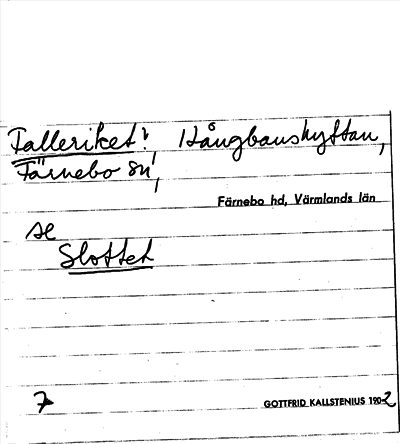 Talleriket? Långbanshyttan,
Färnebo sn,
Färnebo hd, Värmlands län
se
Slottet
7
GOTTFRID KALLSTENIUS 1902